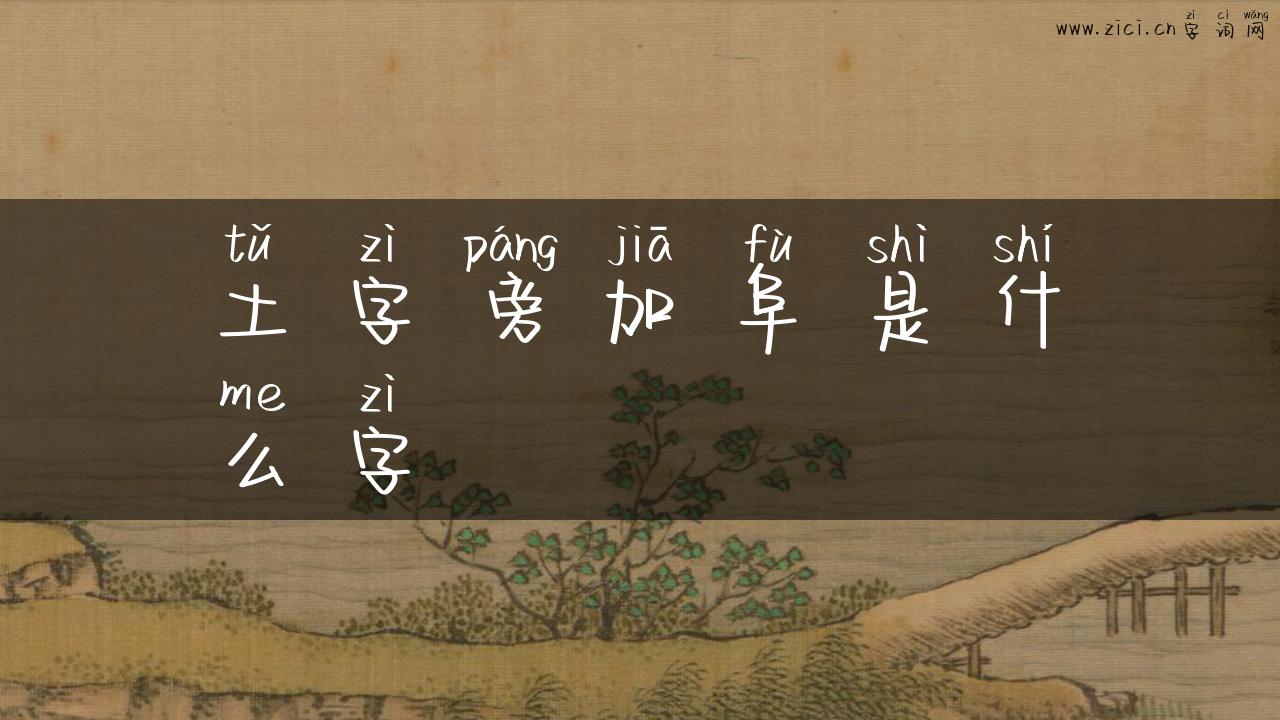 zì cí wǎng
www.zici.cn 字 词 网
tǔ zì páng jiā fù shì shí
土 字 旁 加 阜 是 什
me zì
么 字